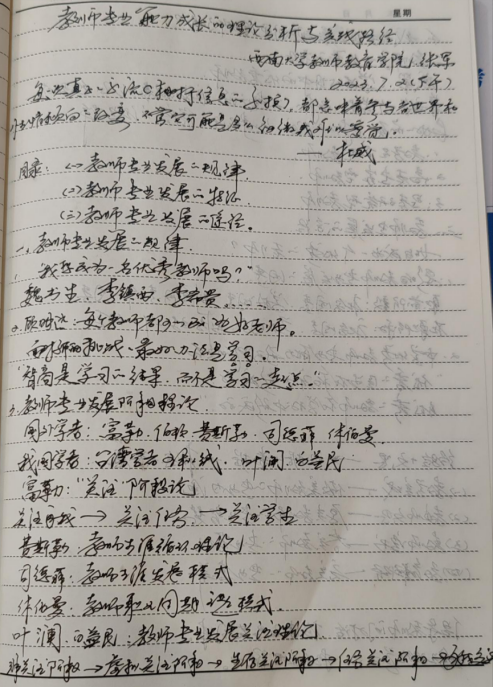 星期
教师专业能力成长的理论分析与实践路径
西南大学教师教育学院 张军
2023.7.2(下午)
都意味着学与当世界和
改善，
——杜威
目录：(一)教师专业发展的规律
(二)教师专业发展的特征
(三)教师专业发展的途径。
一、教师专业发展的规律
1. 我想成为一名优秀教师吗？"
魏书生、李镇西、李希贵。
2. 顾明远：每个教师都可以成为好老师。
面对新的挑战：最好的办法是学习。
"智商是学习的结果，而不是学习的起点。"
3. 教师专业发展阶段理论
国外学者：富勒、伯顿、费斯勒、司德菲、休伯曼
我国学者：台湾学者 叶澜、白益民
富勒："关注"阶段论
关注自我→关注任务→关注学生
费斯勒：教师生涯循环理论
司德菲：教师生涯发展模式
休伯曼：教师职业周期 模式
叶澜、白益民：教师专业发展关注理论
非关注阶段→虚拟关注阶段→生存关注阶段→任务关注阶段→自我关注